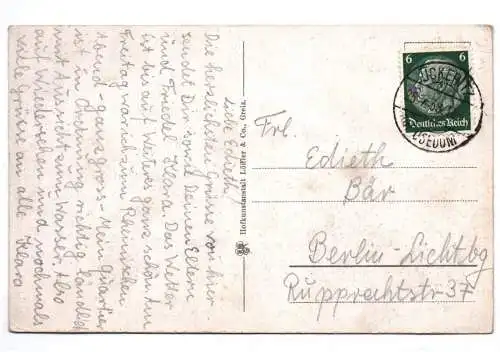 Liebe Edieth!
Die herzlichsten Grüsse von hier
sendet Dir sowie Deinen Eltern
und Friedel Klara. Das Wetter
ist bis auf weiteres ganz schön. Am
Freitag war ich zum
Abend - ganz gross - Mein Quartier
ist in Ordnung richtig ländlich
mit Aussicht zum Wasser. Also
auf Wiedersehen und nochmals
viele Grüsse an alle Klara
Hofkunstanstalt Löffler & Co., Greiz.
6 6
Deutsches Reich
ÜCKERITZ
(USEDOM)
Frl.
Edieth
Bär
Berlin-Lichtbg
Rupprechtstr 37